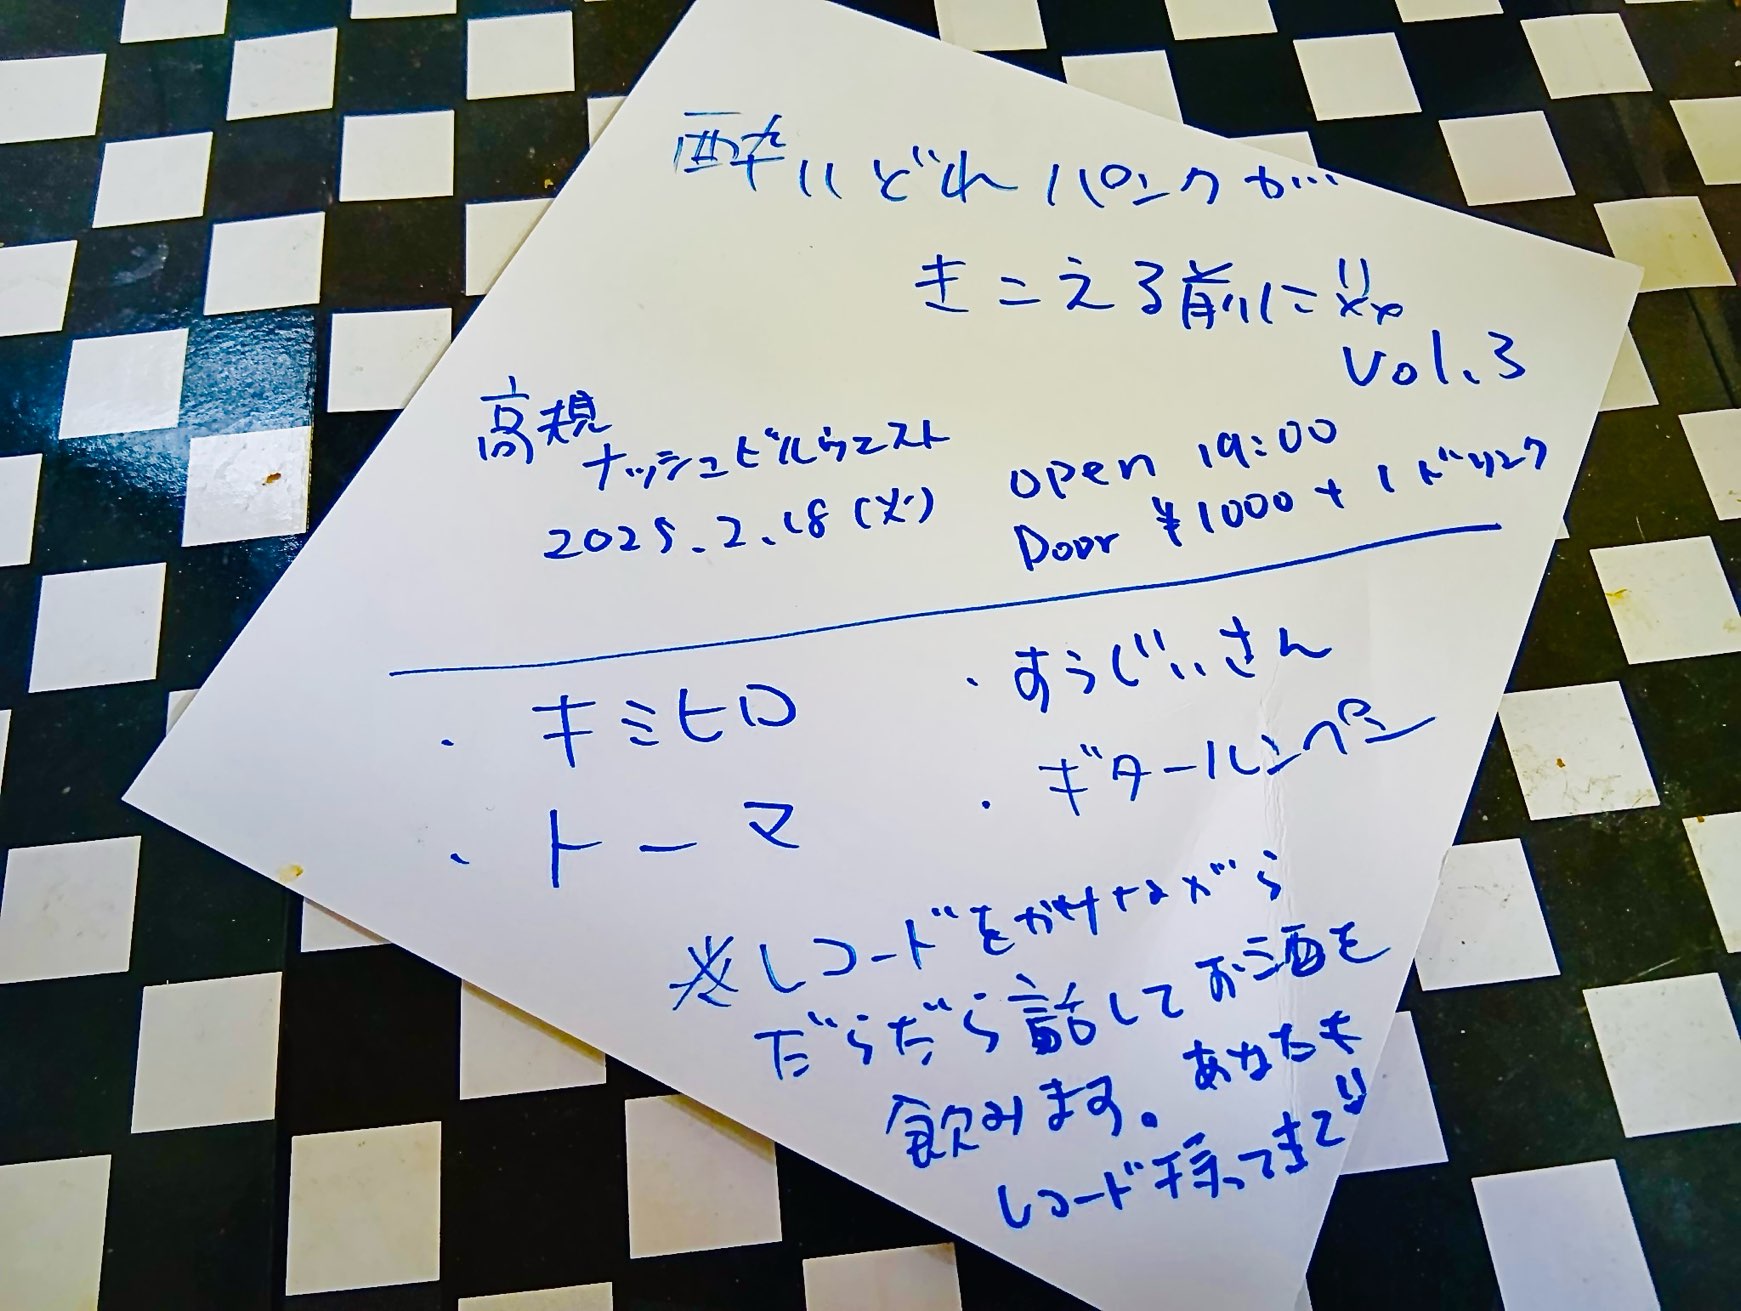 酔いどれパンクが…
きこえる前に!!
Vol.3
高規
ナッシュビルウエスト
2025.2.18(火)
open 19:00
Door ¥1000+1ドリンク
・キミヒロ
・トーマ
・すうじいさん
・ギタールンペン
※レコードをかけながら
だらだら話してお酒を
飲みます。あなたも
レコード持ってきて!!